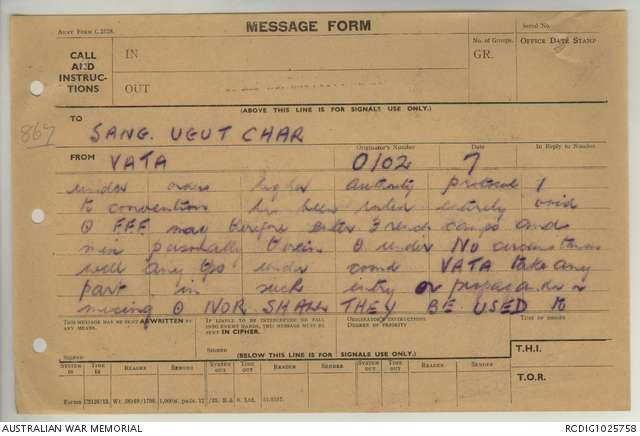 ARMY FORM C.2128.
MESSAGE FORM
Serial No.
CALL AND INSTRUC- TIONS
IN
OUT
No. of Groups.
GR.
OFFICE DATE STAMP
(ABOVE THIS LINE IS FOR SIGNALS USE ONLY.)
867
TO
SANG. UGUT CHAR
FROM
VATA
Originator's Number
O102
Date
7
In Reply to Number
under orders higher authority protocol
to convention has been ruled entirely void
FFF may therefore enter French camps and
mix personally therein under No circumstances
will any tps under comd VATA take any
part in such entry or propaganda or
mixing NOR SHALL THEY BE USED to
THIS MESSAGE MAY BE SENT AS WRITTEN BY ANY MEANS.
IF LIABLE TO BE INTERCEPTED OR FALL INTO ENEMY HANDS, THIS MESSAGE MUST BE SENT IN CIPHER.
ORIGINATOR'S INSTRUCTIONS. DEGREE OF PRIORITY
TIME OF ORIGIN
SIGNED
SIGNED
(BELOW THIS LINE IS FOR SIGNALS USE ONLY.)
T.H.I.
T.O.R.
SYSTEM IN
TIME IN
READER
SENDER
SYSTEM OUT
TIME OUT
READER
SENDER
SYSTEM OUT
TIME OUT
READER
SENDER
AUSTRALIAN WAR MEMORIAL
RCDIG1025758